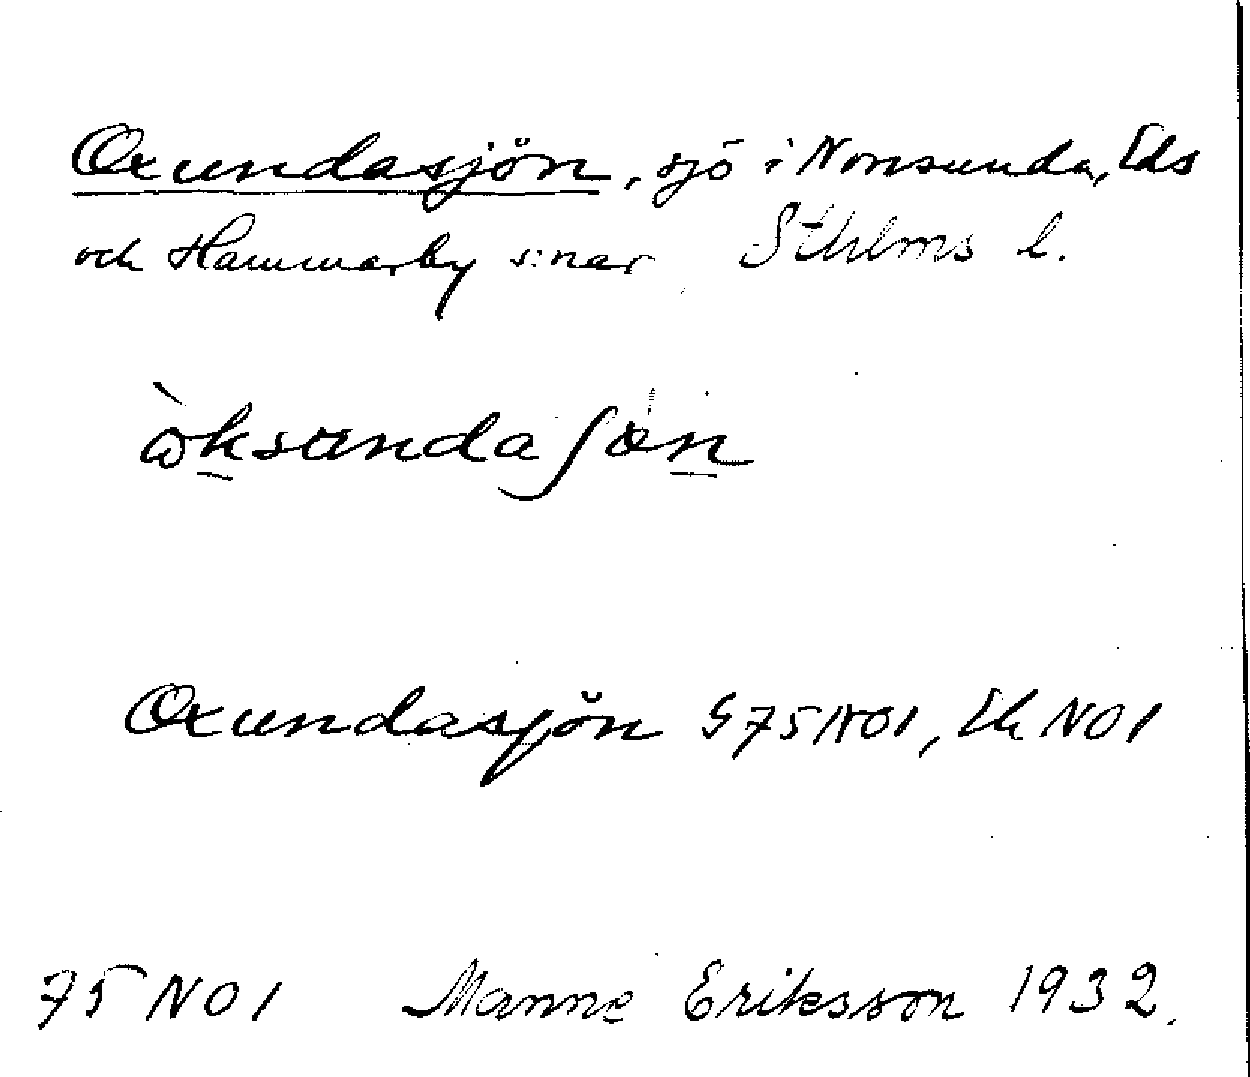 Oxundasjön, sjö i Norrsunda, Eds
och Hammarby s:nar Sthlms l.
Oxundasjön G75NO1, Ek NO1
75 NO1 Manne Eriksson 1932.